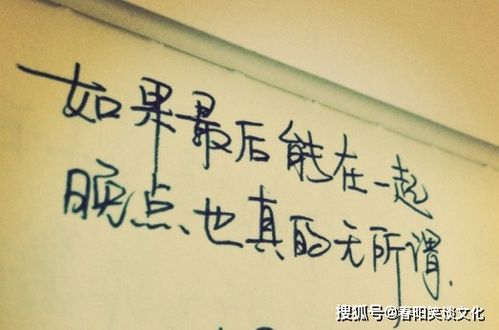 如果最后能在一起
晚点、也真的无所谓.
搜狐号@春阳笑谈文化